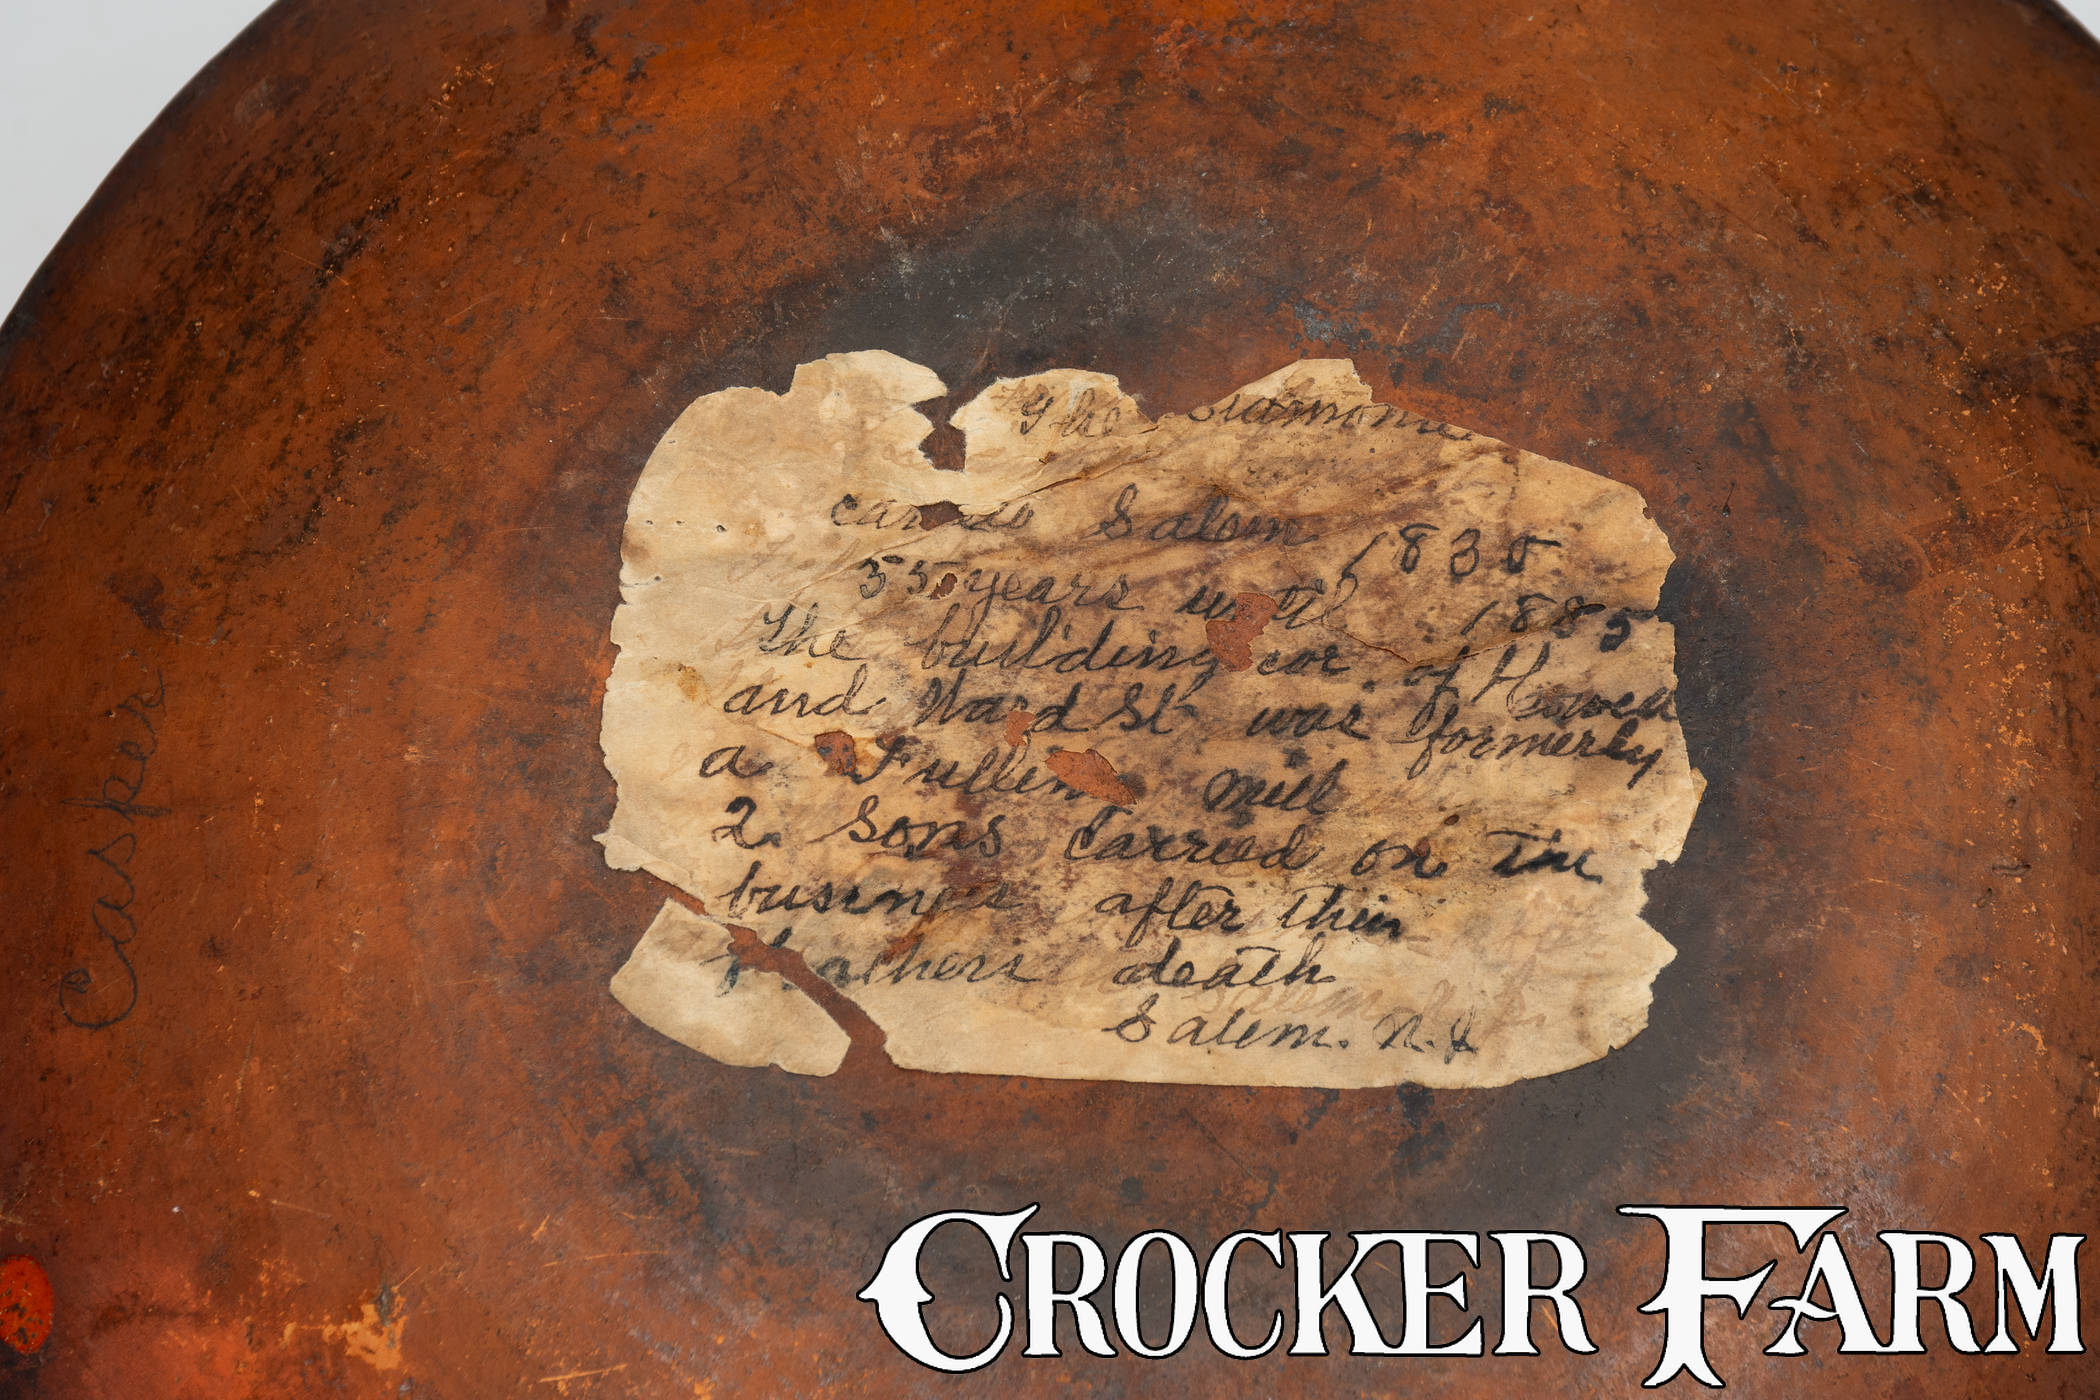 The
came to Salem
1835
55 years until 1885
The building cor. of Howell
and Ward St was formerly
a Fulling mill
2. Sons Carried on the
business after their
fathers death
Salem. N.J
Casper
CROCKER FARM